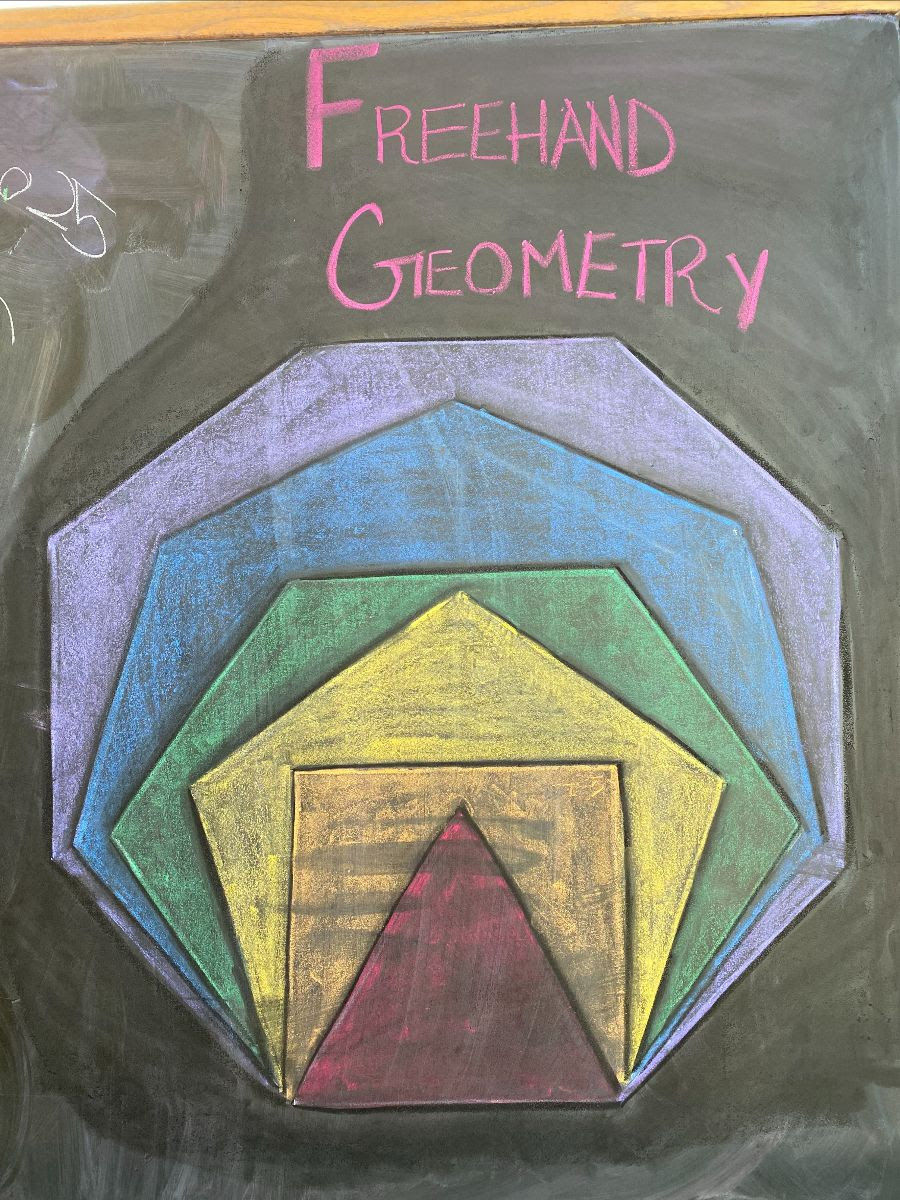 FREEHAND
GEOMETRY